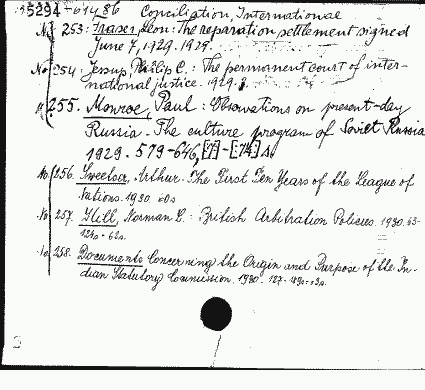 5294-61486 Conciliation, International
No 253: Fraser, Leon: The reparation settlement signed
June 7, 1929. 1929.
No 254: Jessup, Philip C.: The permanent court of inter-
national justice. 1929.
255. Monroe, Paul: Observations on present-day
Russia. The culture program of Soviet Russia
1929. 579-646, [7]-[74] s.
No 256. Sweetser, Arthur. The First Ten Years of the League of
Nations. 1930. 60s
No 257. Hill, Norman L.: British Arbitration Policies. 1930. 63-
124s. = 62s.
No 258. Documents Concerning the Origin and Purpose of the In-
dian Statutory Commission. 1930.